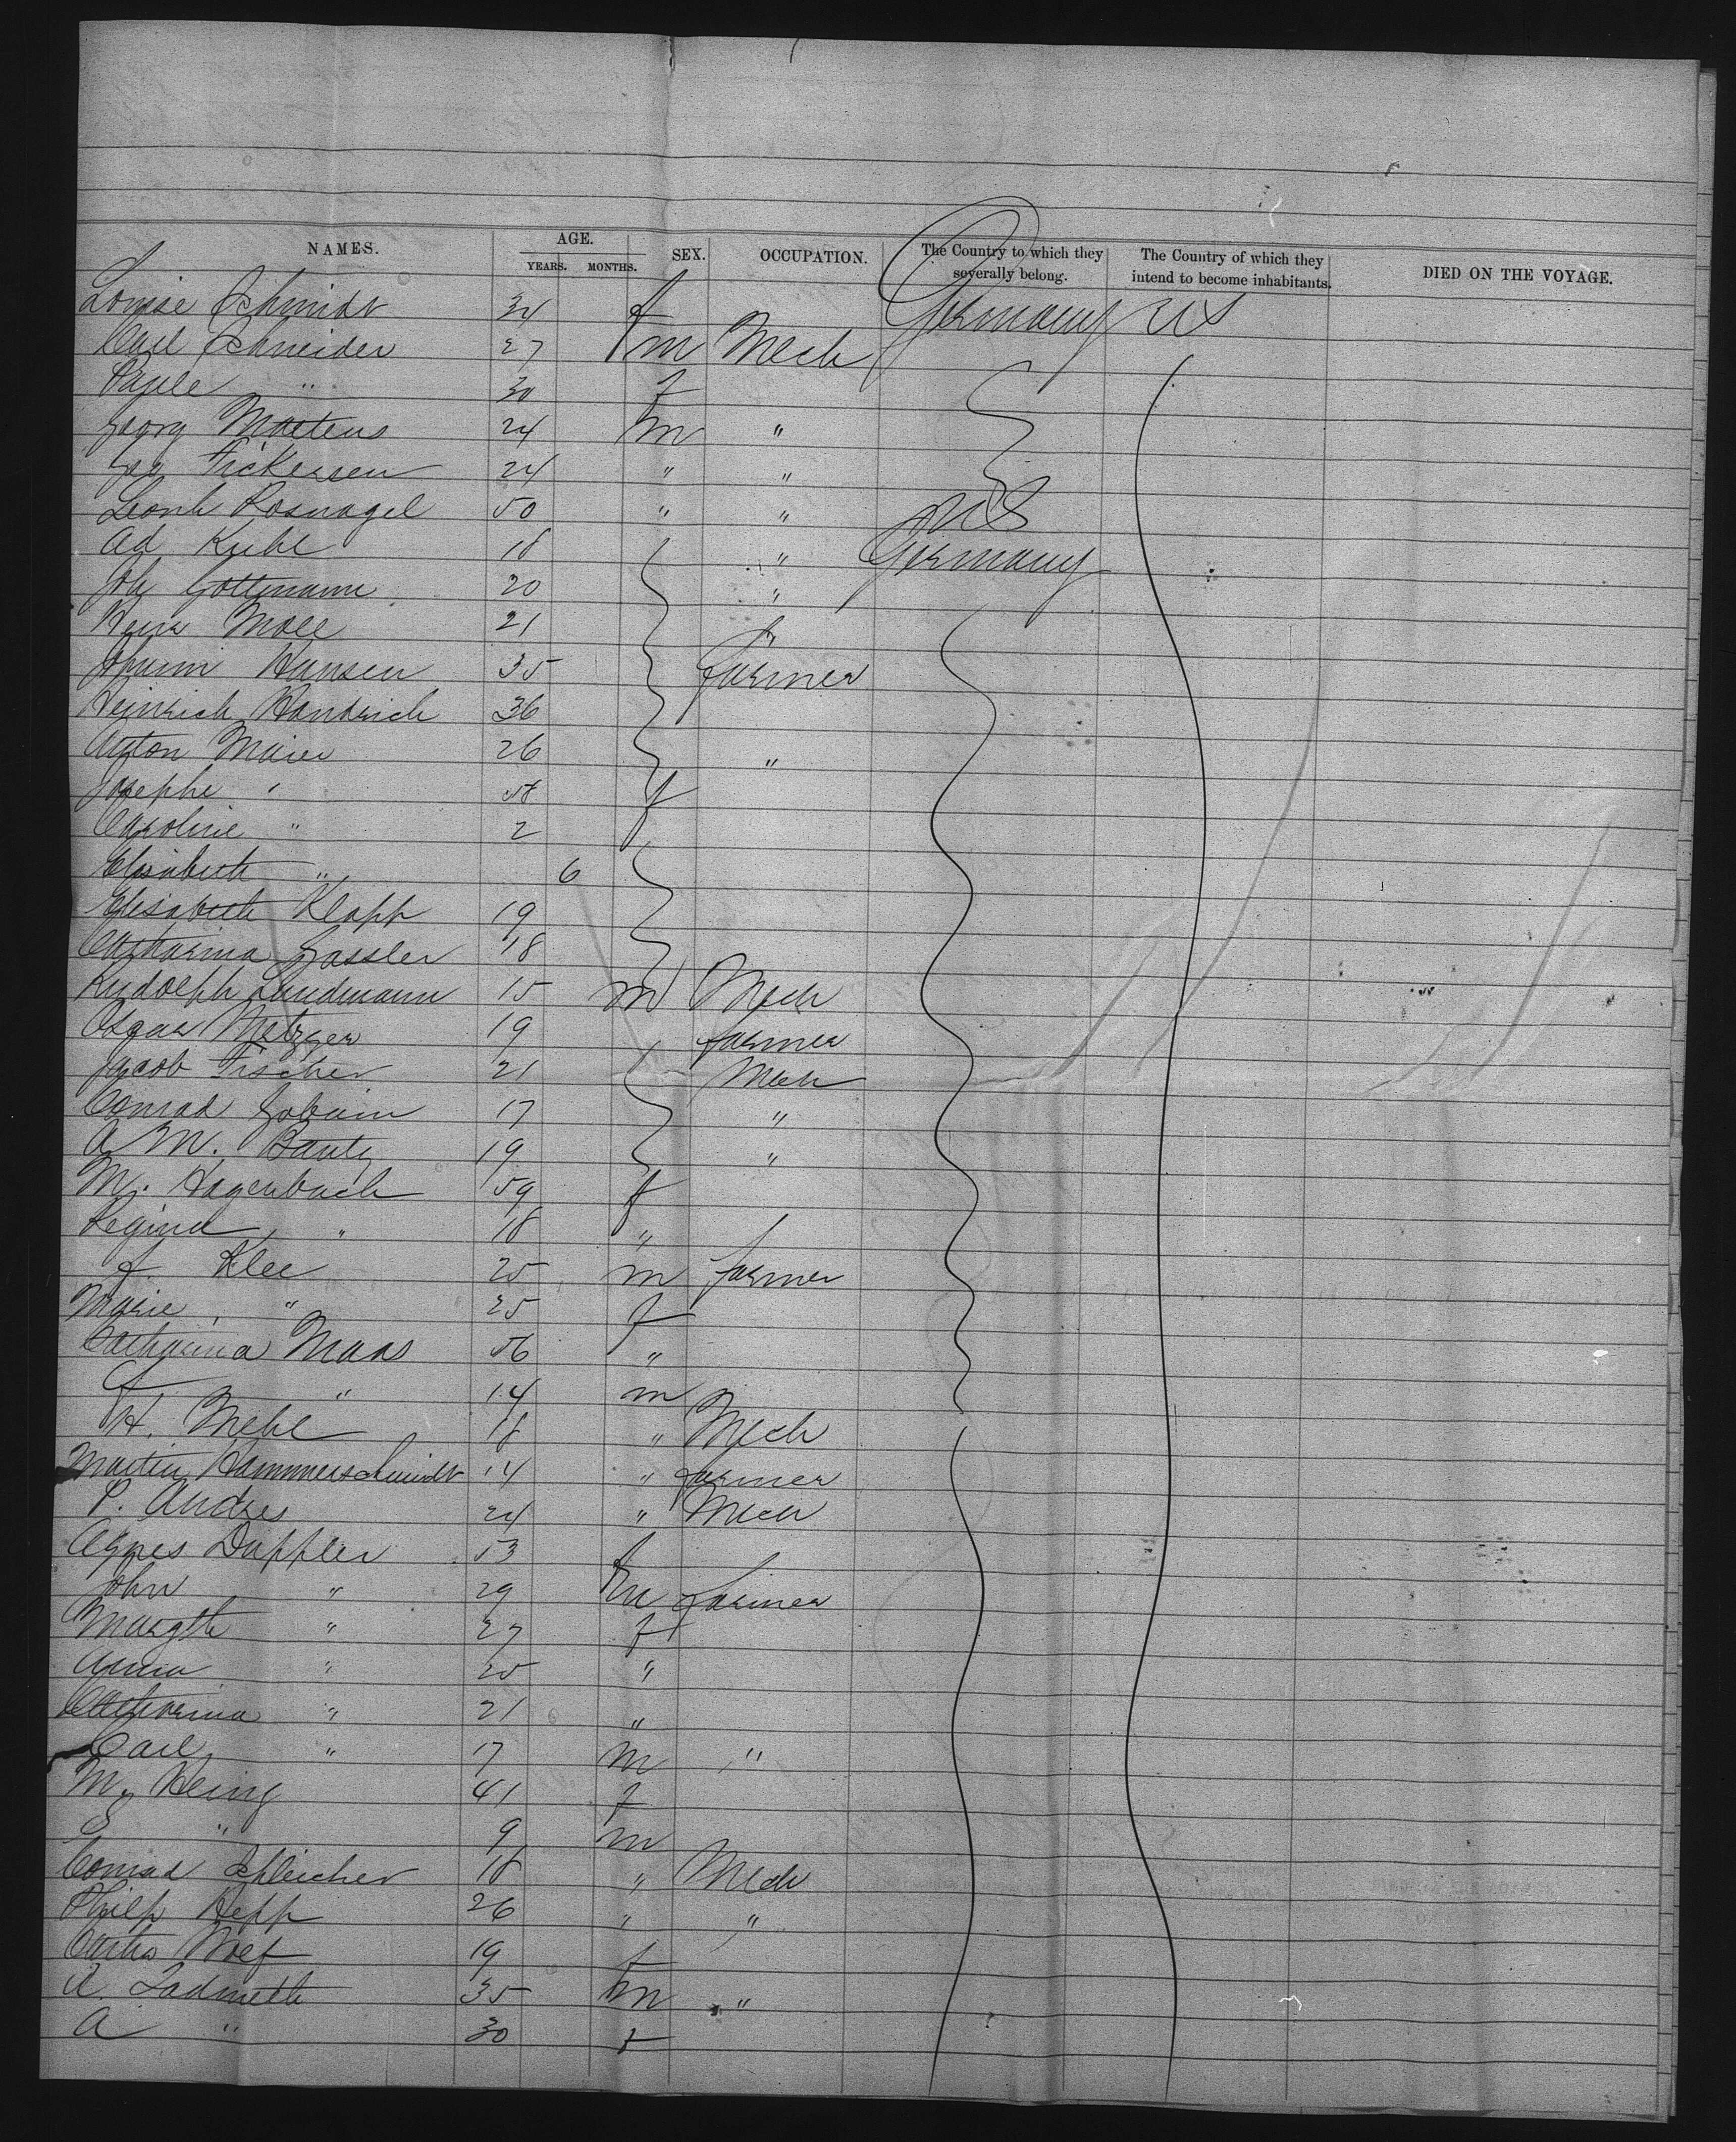 NAMES. AGE. SEX. OCCUPATION. The Country to which they severally belong. The Country of which they intend to become inhabitants. DIED ON THE VOYAGE.
YEARS. MONTHS.
Louise Schmidt 34 f Germany US
Carl Schneider 27 m Mech
" 30 f
Georg Martens 24 m "
Geo Fickersen 24 " "
Leonh Rosnagel 50 " " US
Ad Kuhl 18 " Germany
Joh Gottmann 20 "
Moll 21 "
Johann Hansen 35 farmer
Heinrich Handrich 36
Anton Maier 26 "
Josephe "  f
Caroline " 2
Elisabeth " 6
Elisabeth Klapp 19
Catharina Gassler 18
Rudolph Landmann 15 m Mech
Oscar Metzger 19 farmer
Jacob Fischer 21 Mech
Conrad 17 "
A M. Bautz 19 "
M. Hagenbach 59 f
Regina " 18 "
f. Klee 25 m farmer
Marie " 25 f
Catharina Maas 56 "
" 14 m
H. Mehl 18 " Mech
Martin Hammerschmidt 14 " farmer
P. Andres 24 " Mech
Agnes Dappler 53 f
John " 29 m farmer
Margth " 27 f
Anna " 25 "
Catharina " 21 "
Carl " 17 m "
M. Heing 41 f
" 9 m
Conrad Schleicher 18 " Mech
Philp Hepp 26 " "
19 f
A. 35 m "
A " 30 f